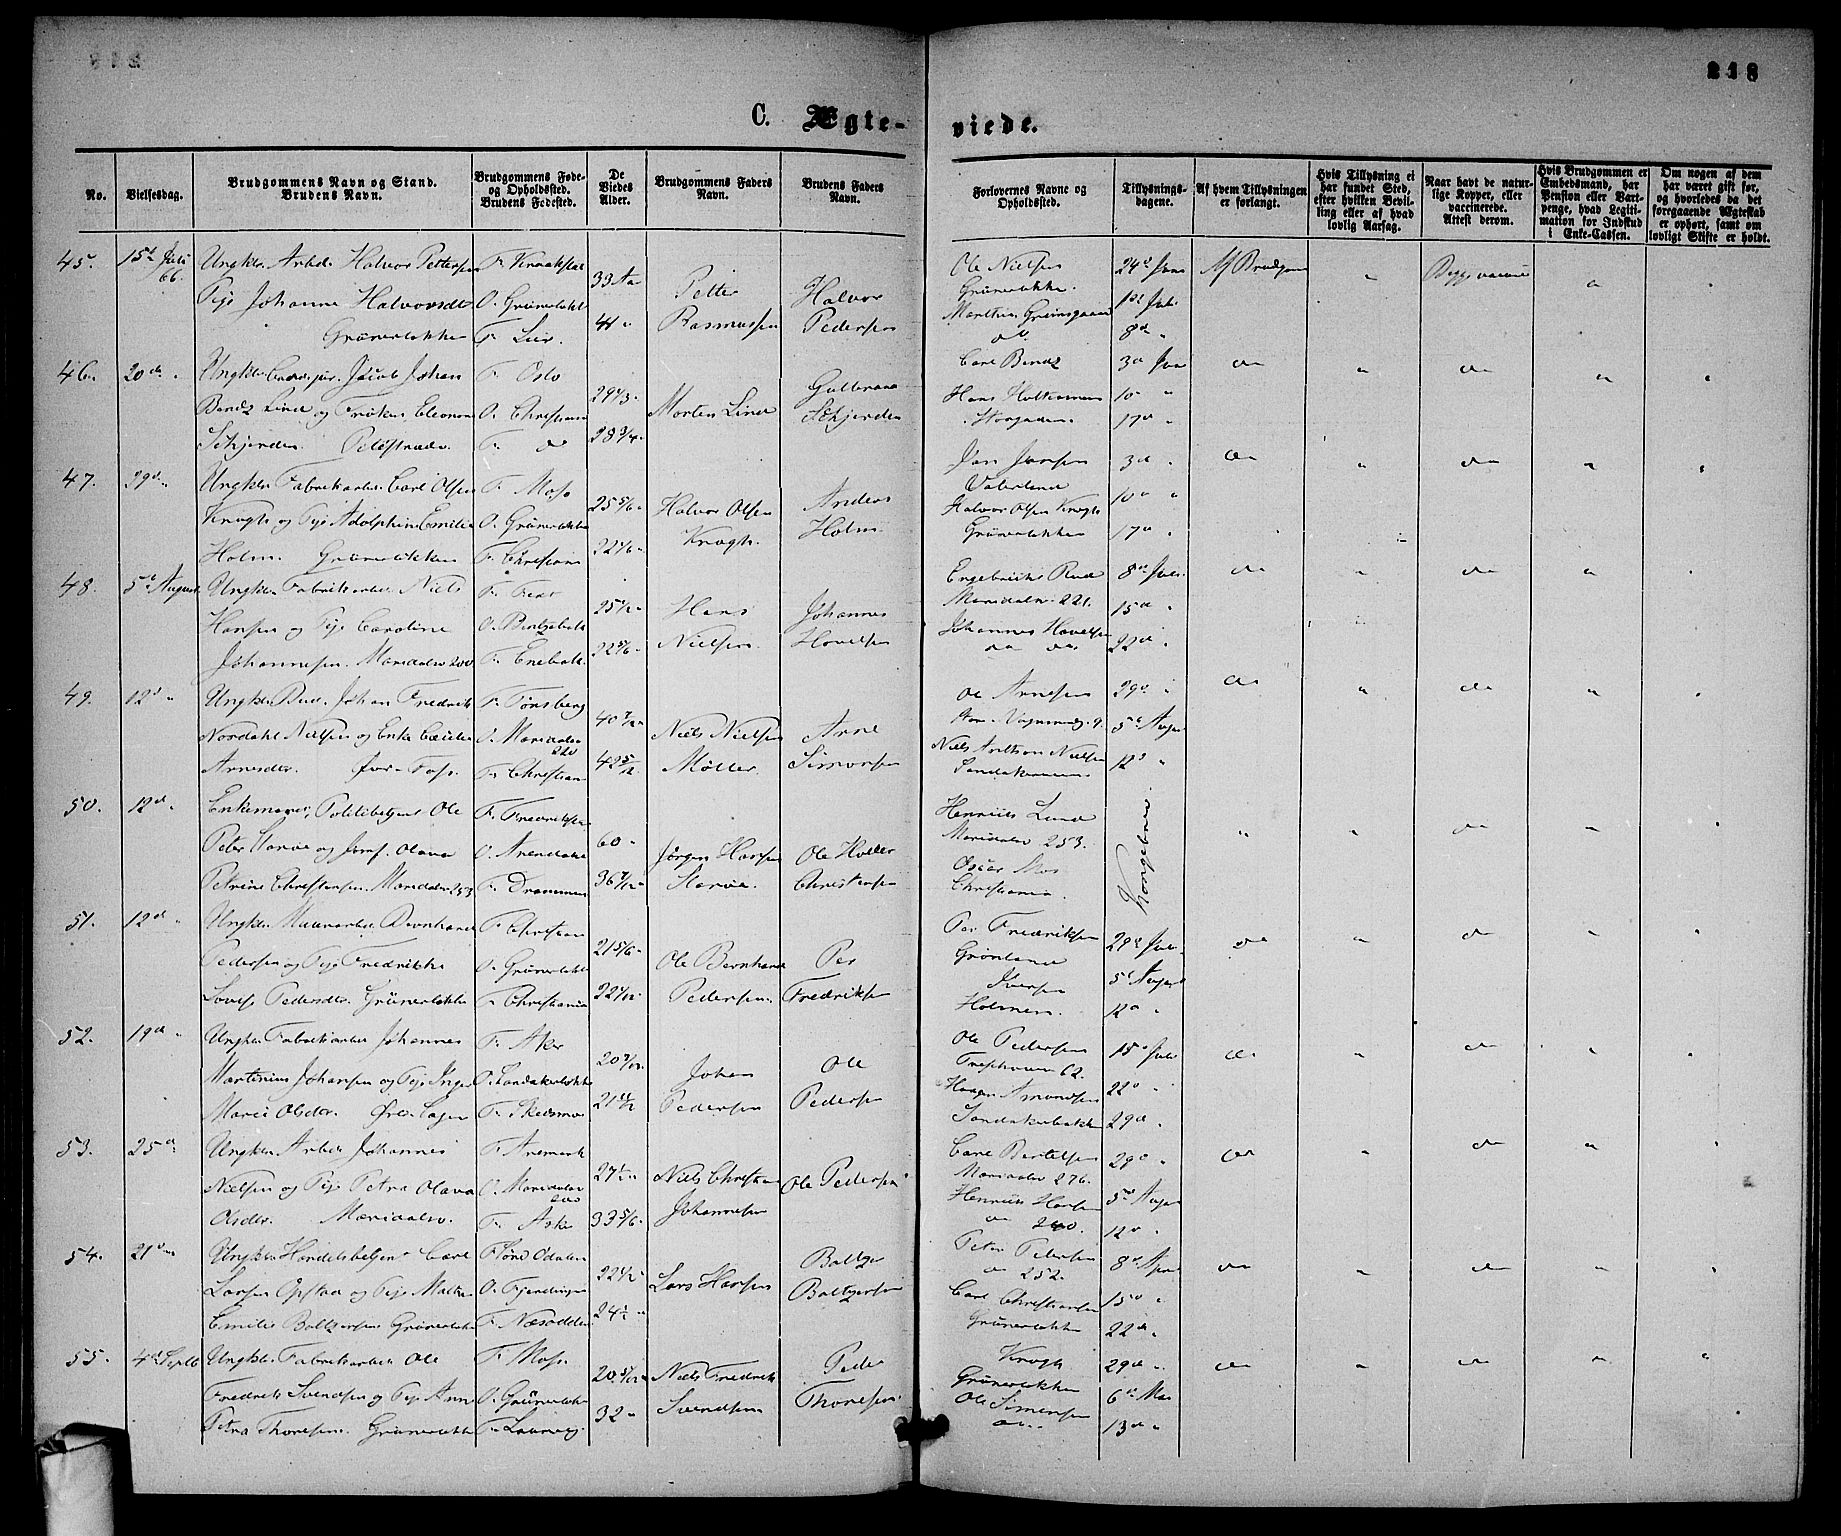 218
C. Ægte-
viede.
No.
Vielsesdag.
Brudgommens Navn og Stand.
Brudens Navn.
Brudgommens Føde-
og Opholdssted.
Brudens Fødested.
De
Viedes
Alder.
Brudgommens Faders
Navn.
Brudens Faders
Navn.
Forlovernes Navne og
Opholdssted.
Tillysnings-
dagene.
Af hvem Tillysningen
er forlangt.
Hvis Tillysning ei
har fundet Sted,
efter hvilken Bevil-
ling eller af hvad
lovlig Aarsag.
Naar havt de natur-
lige Kopper, eller
vaccinerede.
Attest derom.
Hvis Brudgommen er
Embedsmand, har
Pension eller Vart-
penge, hvad Legiti-
mation for Indskud
i Enke-Cassen.
Om nogen af dem
har været gift før,
og hvorledes da det
foregaaende Ægteskab
er ophørt, samt om
lovligt Skifte er holdt.
45. 15d Juli 66. Ungkl. Arbd. Halvor Pettersen
Pige Johanne Halvorsdt
Grünerløkken
F. Kraakstad
O. Grünerløkk
F. Lier.
33 Aar
41 "
Petter
Rasmussen
Halvor
Pedersen
Ole Nielsen
Grünerløkke
do.
24d Juni
1st Juli
8d "
Af Brudgom
46. 20d " Ungkl. Jacob Johan
Bentz Lind og Frøken Eleonora
Schjerden.
F. Oslo
O. Christiania
F. do
29 1/3
28 3/4
Morten Lind
Gulbrand
Schjerden
Carl Bentz
Hans
Storgaden
3d Juni
10 "
17d "
do do
47. 29d " Ungkl. Fabrikarbd. Carl Olsen
Krogh og Pige Adolphine Emilie
Holm. Grünerløkken
F. Moss
O. Grünerløkke
F. Christiania
25 5/6
22 1/6
Halvor Olsen
Krogh.
Anders
Holm
Jan Jansen
Vaterland
Halvor Olsen Krogh
Grünerløkken
3d "
10d "
17d "
do do
48. 5d August Ungkl. Fabrikarbd. Niels
Hansen og Pige Caroline
Johannesen. Maridalsv 200
F.
O.
F. Enebak.
25 1/2
22 5/6
Hans
Nielsen
Johannes
Hovelsen
Engebrikt Rud
Maridalsv. 221.
Johannes Hovelsen
do do
8d Juli
15d "
22d "
do do
49. 12d " Ungkl. Bud. Johan Fredrik
Nordahl Nielsen og Enke Cecilie
Arnesdtr. Øvre Foss.
F. Tønsberg
O. Maridalsv
220
F. Christiania
40 7/12
42 5/12
Niels Nielsen
Møller.
Arne
Simonsen
Ole Arnesen
Niels Nielsen
29d "
5d Aug
12d "
do do
50. 12d " Enkemand, Politibetjent Ole
Peter og Jomf. Olava
Petrine Christensen. Maridalsv 253
F. Fredrikst.
O.
F. Drammen
60
36
Jørgen Hansen
Ole Holter
Christensen
Henrik Lund
Maridalsv 253.
Oscar Moe
Christiania
Kongebrev
do
51. 12d " Ungkl. Murarbd. Bernhard
Pedersen og Pige Fredrikke
Lovise Pedersdtr. Grünerløkke
F. Christiania
O. Grünerløkk
F. Christiania
21 5/6
22
Ole Bernhard
Pedersen
Per
Fredriksen
Per Fredriksen
Grønland
Iversen
Holmen
29d Juli
5d August
12d "
do do
52. 19d " Ungkl. Fabrikarbd. Johannes
Martinius Johansen og Pige Inger
Marie Olsdtr.
F. Aker
O. Sandakerløkke
F. Skedsmo
20
21
Johan
Pedersen
Ole
Pedersen
Ole Pedersen
62.
Haagen Amundsen
Sandakerbakken
15d Juli
22d "
29d "
do do
53. 25d " Ungkl. Arbd. Johannes
Nielsen og Pige Petra Olava
Olsdtr. Maridalsv.
F. Aremark
O. Maridalsv
F. Aker
27 1/2
33 5/6
Niels Christian
Johannesen
Ole Pedersen
Carl Bertelsen
Maridalsv 276.
Henrik Hansen
do 240.
29d "
5d August
12d "
do do
54. 21d Ungkl. Handelsbetjen Carl
Larsen Opstad og Pige Mathea
Emilie Boltzersen Grünerløkke
F. Søndre Odalen
O. Fjerdingen
F. Næsodden
22 1/2
24 1/2
Lars Hansen
Boltzer
Boltzersen
Peter Pedersen
do 252.
Carl Christiansen
Grünerløkke
8d Apr
15d "
22d "
do do
55. 4d Septb Ungkl. Fabrikarbd. Ole
Fredrik Svendsen og Pige Anne
Petra Thoresen. Grünerløkke
F. Moss
O. Grünerløkke
F. Laurvig
20
32 "
Niels Fredrik
Svendsen
Peder
Thoresen
Krogh
Grünerløkken
Ole Simensen
do
29d "
6d Mai
13d "
do do